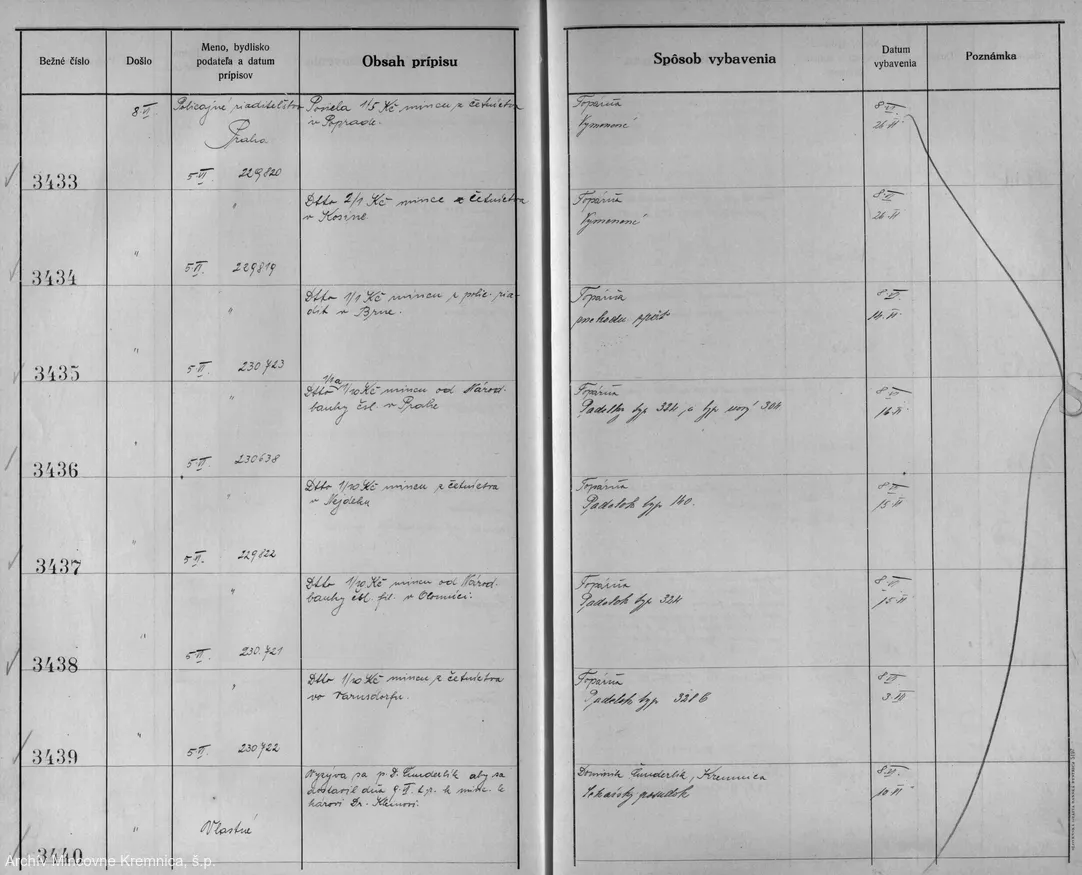 Bežné číslo
Došlo
Meno, bydlisko
podateľa a datum
prípisov
Obsah prípisu
Spôsob vybavenia
Datum
vybavenia
Poznámka
8. VI
Policajné riaditeľstvo
Praha
Posiela 1/5 Kč mincu z četníctva
v Poprade.
Topárňa
Vymenené
8. VI
26. VI
3433
5. VI. 229820
"
Dtto 2/1 Kč mince z četníctva
v
Topárňa
Vymenené
8. VI
26. VI
"
3434
5. VI. 229819
"
Dtto 1/1 Kč mincu z polic. ria-
dit. v Brne.
Topárňa
8. VI.
14. VI
"
3435
5. VI. 230.723
"
1/1 a
Dtto 1/10 Kč mincu od Národ.
banky čsl. v Prahe
Topárňa
Padelky typ 324, a typ nový 304
8. VI
16. VI
3436
5. VI. 230638
"
Dtto 1/10 Kč mincu z četníctva
v Nejdeku
Topárňa
Padelok typ 140.
8. VI
15. VI
"
3437
5. VI. 229822
"
Dtto 1/10 Kč mincu od Národ.
banky čsl. fil. v Olomúci.
Topárňa
Padelok typ 324
8. VI
15. VI
"
3438
5. VI. 230.721
"
Dtto 1/10 Kč mincu z četníctva
vo Varnsdorfu.
Topárňa
Padelok typ 328 E
8. VI
"
3439
5. VI. 230722
Vyzýva sa p. D. Čunderlík aby sa
dostavil dňa 9. VI. t. r. k minc. le-
károvi Dr. Kleinovi.
Dominik Čunderlík, Kremnica
Lekársky posudok
8. VI.
10. VI
"
Vlastné
3440
Archív Mincovne Kremnica, š.p.